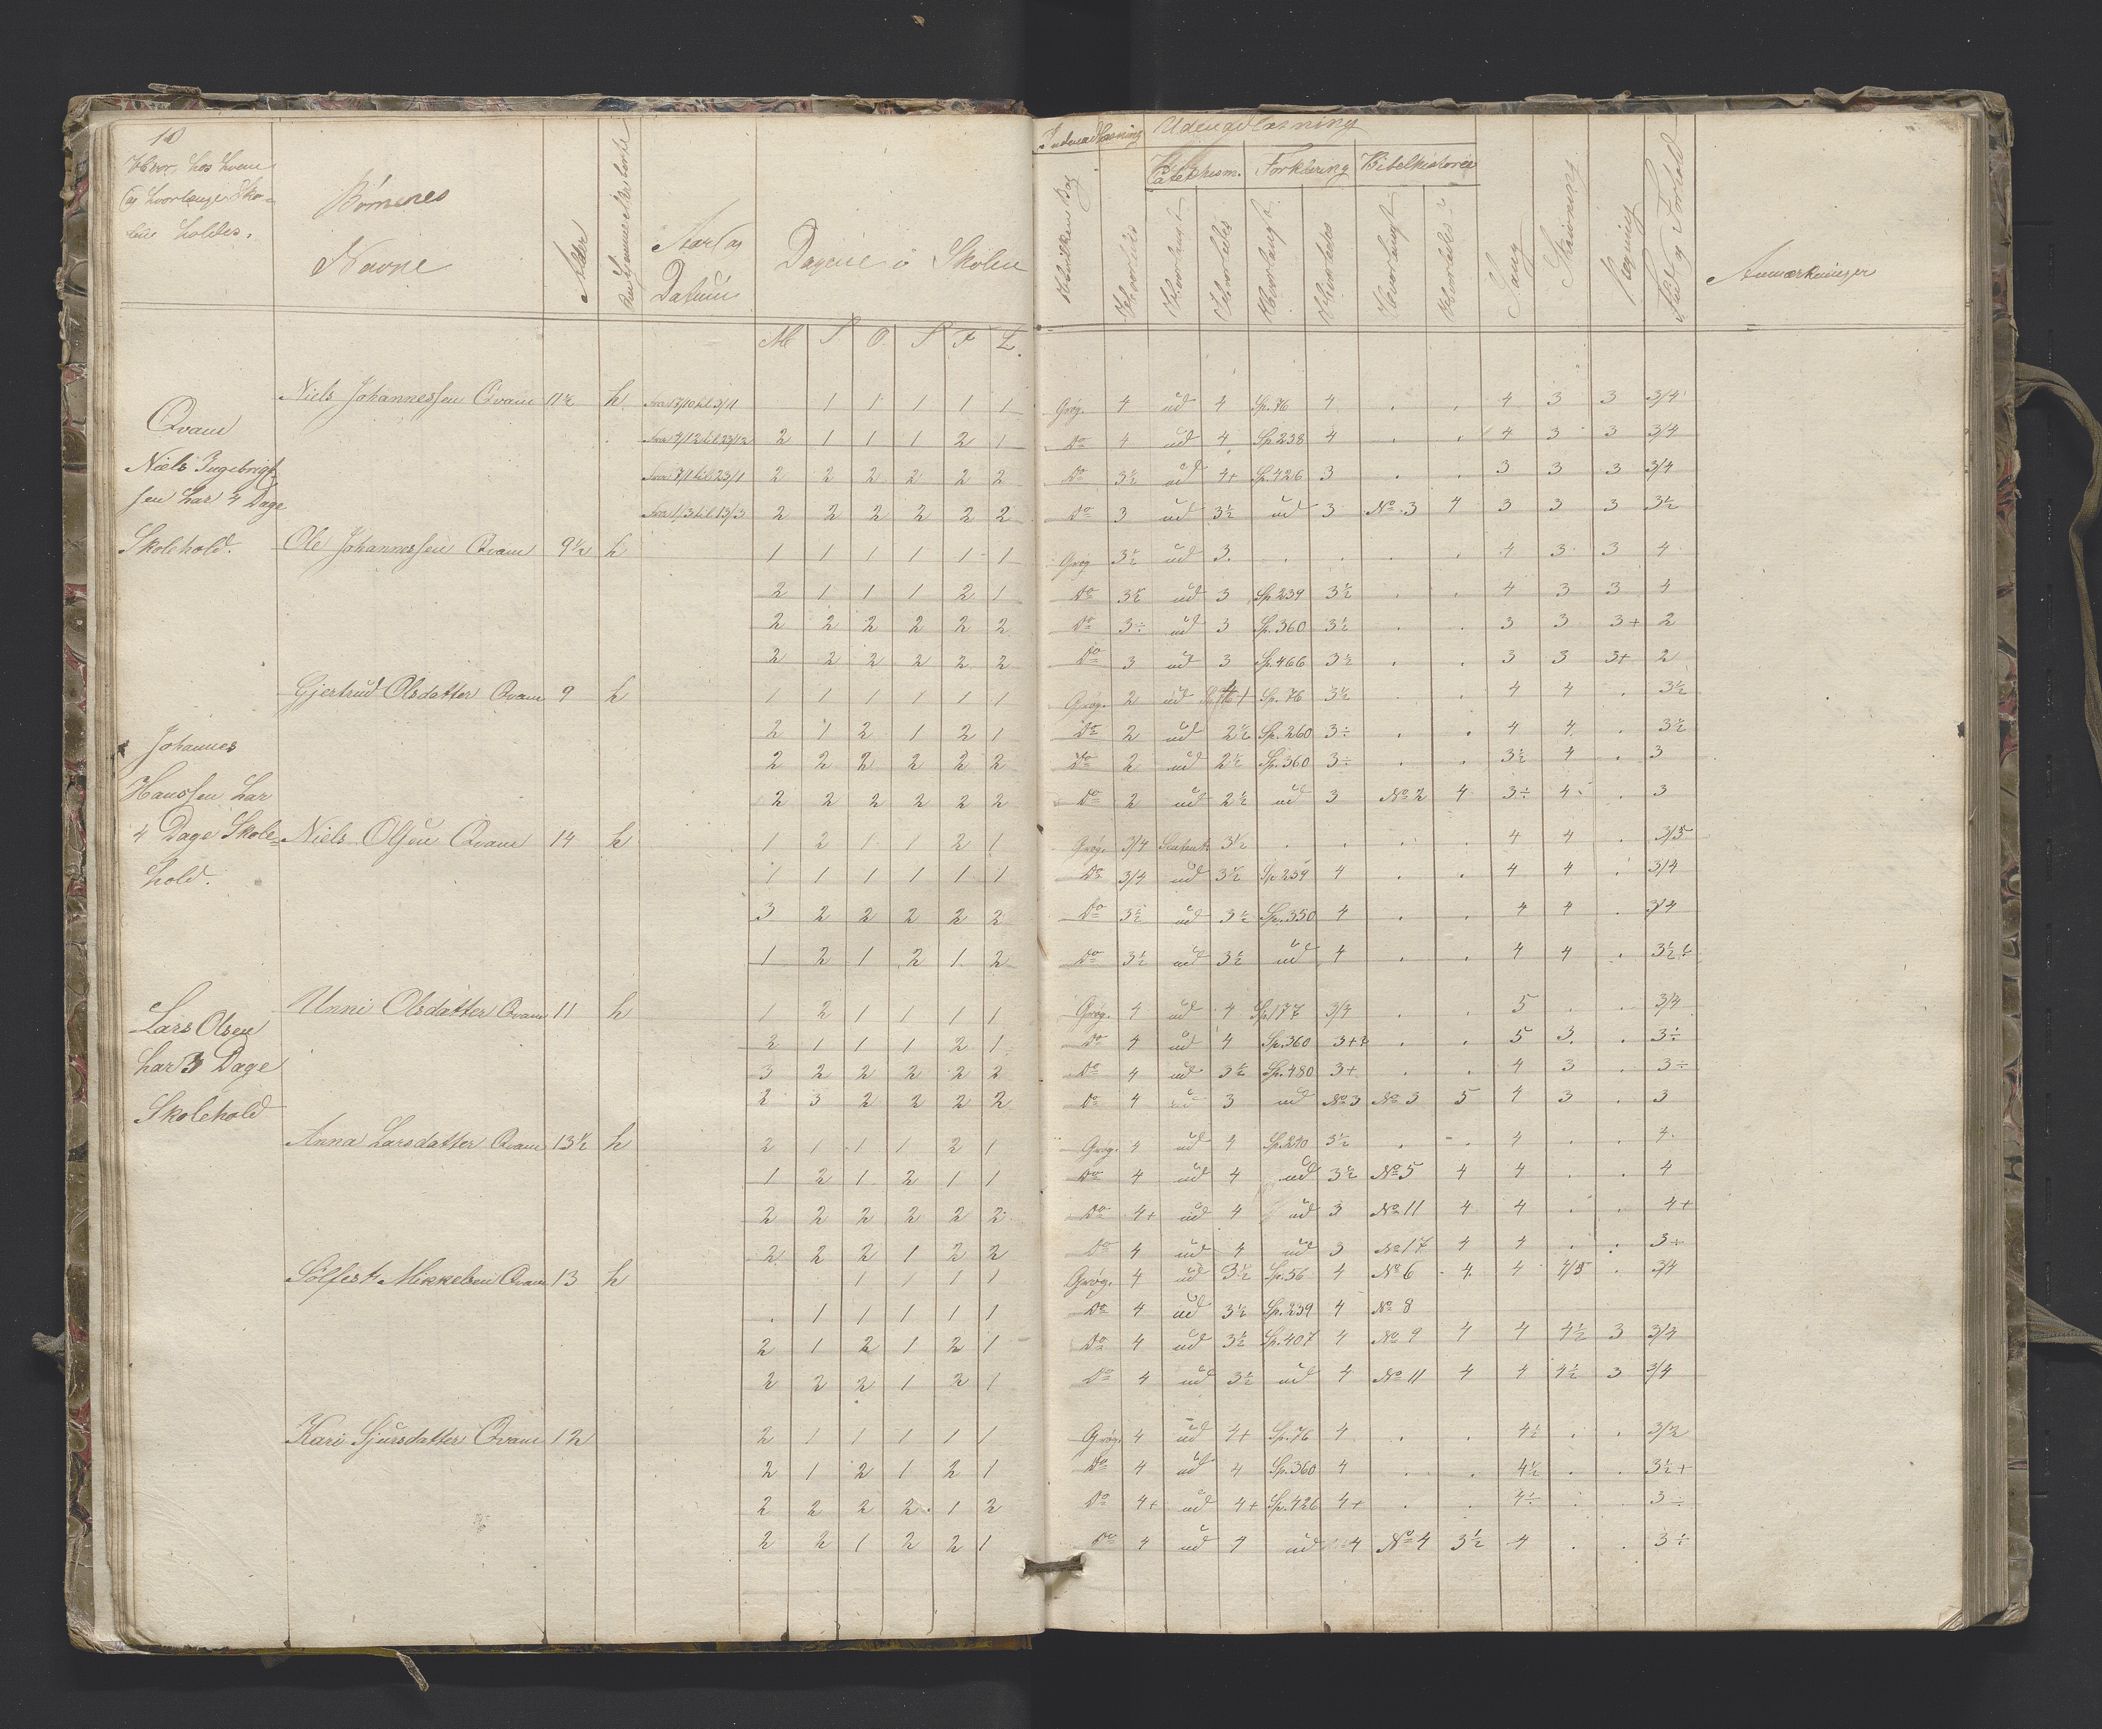 10
Hvor, hos hvem
og hvorlænge Sko-
len holdes.
Børnenes
Navne
Alder
Aar og
Datum
Dagene i Skolen
Indenadlæsning
Udenadlæsning
Catekhism. Forklaring Bibelhistorie
Hvilken Bog
Hvorledes
Hvorlangt
Hvorledes
Hvorlangt
Hvorledes
Hvorlangt
Hvorledes
Sang
Skrivning
Regning
Flid og Forhold
Anmærkninger
M S O S F L.
Niels Johannessen Qvam 11½ h fra 17/10 til 3/11 1 1 1 1 1 Grøg. 4 ud 4 Sp. 76 4 . . 4 3 3 3/4
Qvam
fra 4/12 til 23/12 2 1 1 1 2 1 Do 4 ud 4 Sp. 238 4 . . 4 3 3 3/4
Niels Ingebrigt-
fra 7/1 til 23/1 2 2 2 2 2 2 Do 3½ ud 4+ Sp. 426 3 . . 3 3 3 3/4
sen har 4 Dage
fra 1/3 til 13/3 2 2 2 2 2 2 Do 3 ud 3½ ud 3 No 3 4 3 3 3 3½
Skolehold.
Ole Johannessen Qvam 9½ h 1 1 1 1 1 1 Grøg 3½ ud 3 . . . . 4 3 3 4
2 1 1 1 2 1 Do 3½ ud 3 Sp. 239 3½ . . 4 3 3 4
2 2 2 2 2 2 Do 3÷ ud 3 Sp. 360 3½ . . 3 3 3+ 2
2 2 2 2 2 2 Do 3 ud 3 Sp. 466 3½ . . 3 3 3+ 2
Gjertrud Olsdatter Qvam 9 h 1 1 1 1 1 1 Grøg. 2 ud Sp. 76 3½ . . 4 4 . 3½
2 1 2 1 2 1 Do 2 ud 2½ Sp. 260 3÷ . . 4 4 . 3½
Johannes
2 2 2 2 2 2 Do 2 ud 2½ Sp. 360 3÷ . . 3½ 4 . 3
Hanssen har
2 2 2 2 2 2 Do 2 ud 2½ ud 3 No 2 4 3÷ 4 . 3
4 Dage Skole-
Niels Olsen Qvam 14 h 1 2 1 1 2 1 Grøg. 3/4 3½ . . . . 4 4 . 3/5
hold.
1 1 1 1 1 1 Do 3/4 ud 3½ Sp. 239 4 . . 4 4 . 3/4
3 2 2 2 2 2 Do 3½ ud 3½ Sp. 350 4 . . 4 4 . 3/4
1 2 1 2 1 2 Do 3½ ud 3½ ud 4 . . 4 4 . 3½÷
Unni Olsdatter Qvam 11 h 1 2 1 1 1 1 Grøg. 4 ud 4 Sp. 177 3/4 . . 5 . . 3/4
Lars Olsen
2 1 1 1 2 1 Do 4 ud 4 Sp. 360 3+ . . 5 3 . 3÷
har 3 Dage
3 2 2 2 2 2 Do 4 ud 3½ Sp. 480 3+ . . 4 3 . 3÷
Skolehold
2 3 2 2 2 2 Do 4 ud 3 ud No 3 No 3 5 4 3 . 3
Anna Larsdatter Qvam 13½ h 2 1 1 1 2 1 Grøg. 4 ud 4 Sp. 240 3½ . . 4 . . 4
1 2 1 2 1 1 Do 4 ud 4 ud 3½ No 5 4 4 . . 4
2 2 2 2 2 2 Do 4+ ud 4 ud 3 No 11 4 4 . . 4+
2 2 2 1 2 2 Do 4 ud 4 ud 3 No 17 4 4 . . 3÷
Sølfest Mikkelsen Qvam 13 h 1 1 1 1 Grøg. 4 ud 3½ Sp. 56 4 No 6 4 4 4/5 . 3/4
. 1 1 1 1 1 Do 4 ud 3½ Sp. 239 4 No 8
2 1 2 1 2 1 Do 4 ud 3½ Sp. 407 4 No 9 4 4 4½ 3 3/4
2 2 2 1 2 1 Do 4 ud 3½ ud 4 No 11 4 4 4½ 3 3/4
Kari Sjursdatter Qvam 12 2 1 1 1 1 1 Grøg. 4 ud 4+ Sp. 76 4 . . 4½ . . 3/2
2 1 2 1 2 1 Do 4 ud 4 Sp. 360 4 . . 4½ . . 3½+
2 2 2 2 1 2 Do 4+ ud 4+ Sp. 426 4+ . . 4÷ . . 3÷
2 2 1 2 2 1 Do 4 ud 4 ud 4 No 4 3½ 4 . . 3÷